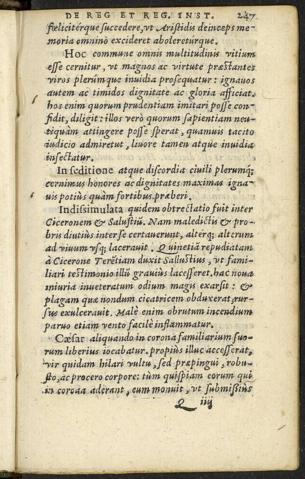 DE REG ET REG. INST. 247
fœlicitérque succedere, vt Aristidis deinceps me-
moria omninò excideret aboleretúrque.
Hoc commune omnis multitudinis vitium
esse cernitur, vt magnos ac virtute præstantes
viros plerúmque inuidia prosequatur: ignauos
autem ac timidos dignitate ac gloria afficiat.
hos enim quorum prudentiam imitari posse con-
fidit, diligit: illos verò quorum sapientiam neu-
tiquàm attingere posse sperat, quamuis tacito
iudicio admiretur, liuore tamen atque inuidia
insectatur.
In seditione atque discordia ciuili plerúmq;
cernimus honores ac dignitates maximas igna-
uis potiùs quàm fortibus præberi.
Indissimulata quidem obtrectatio fuit inter
Ciceronem & Salustiũ. Nam maledictis & pro-
bris diutiùs inter se certauerunt, altérq; alterum
ad viuum vsq; lacerauit. Quinetiã repudiatam
à Cicerone Terẽtiam duxit Sallustius, vt fami-
liari testimonio illũ grauiùs lacesseret. hac noua
iniuria inueteratum odium magis exarsit: &
plagam quæ nondum cicatricem obduxerat, rur-
sus exulcerauit. Malè enim obrutum incendium
paruo etiam vento facilè inflammatur.
Cæsar aliquando in corona familiarium suo-
rum liberius iocabatur. propiùs illuc accesserat,
vir quidam hilari vultu, sed præpingui, robu-
sto, ac procero corpore: tùm quispiam eorum qui
in corona aderant, eum monuit, vt submissiùs
Q iiij